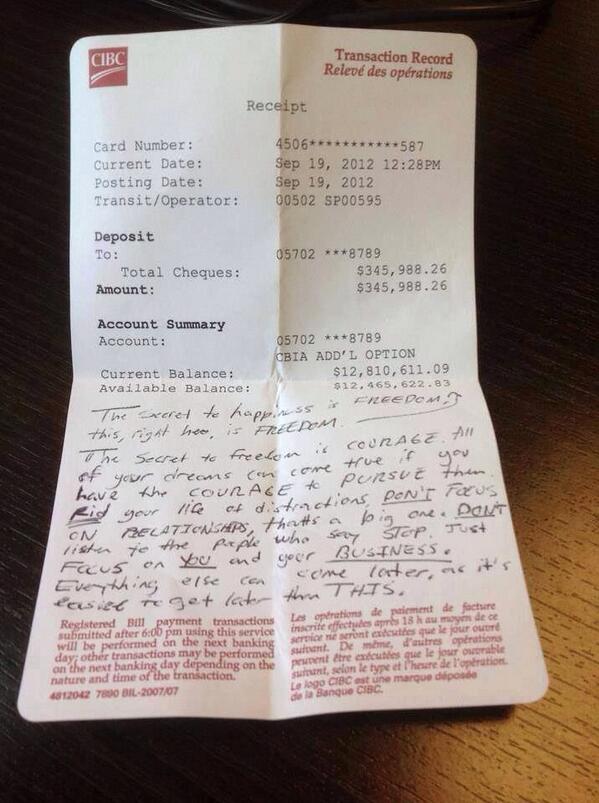 CIBC
Transaction Record
Relevé des opérations
Receipt
Card Number: 4506***********587
Current Date: Sep 19, 2012 12:28PM
Posting Date: Sep 19, 2012
Transit/Operator: 00502 SP00595
Deposit
To: 05702 ***8789
Total Cheques: $345,988.26
Amount: $345,988.26
Account Summary
Account: 05702 ***8789
CBIA ADD'L OPTION
Current Balance: $12,810,611.09
Available Balance: $12,465,622.83
The secret to happiness is FREEDOM,
this, right here, is FREEDOM.
The Secret to freedom is COURAGE. All
of your dreams can come true if you
have the COURAGE to PURSUE them.
Rid your life of distractions, DON'T FOCUS
ON RELATIONSHIPS, thatts a big one. DON'T
listen to the people who say STOP. Just
FOCUS on YOU and your BUSINESS.
Everything else can come later, as it's
easier to get later than THIS.
Registered Bill payment transactions
submitted after 6:00 pm using this service
will be performed on the next banking
day; other transactions may be performed
on the next banking day depending on the
nature and time of the transaction.
4812042 7890 BIL-2007/07
Les opérations de paiement de facture
inscrite effectuées après 18 h au moyen de ce
service ne seront exécutées que le jour ouvré
suivant. De même, d'autres opérations
peuvent être exécutées que le jour ouvrable
suivant, selon le type et l'heure de l'opération.
Le logo CIBC est une marque déposée
de la Banque CIBC.